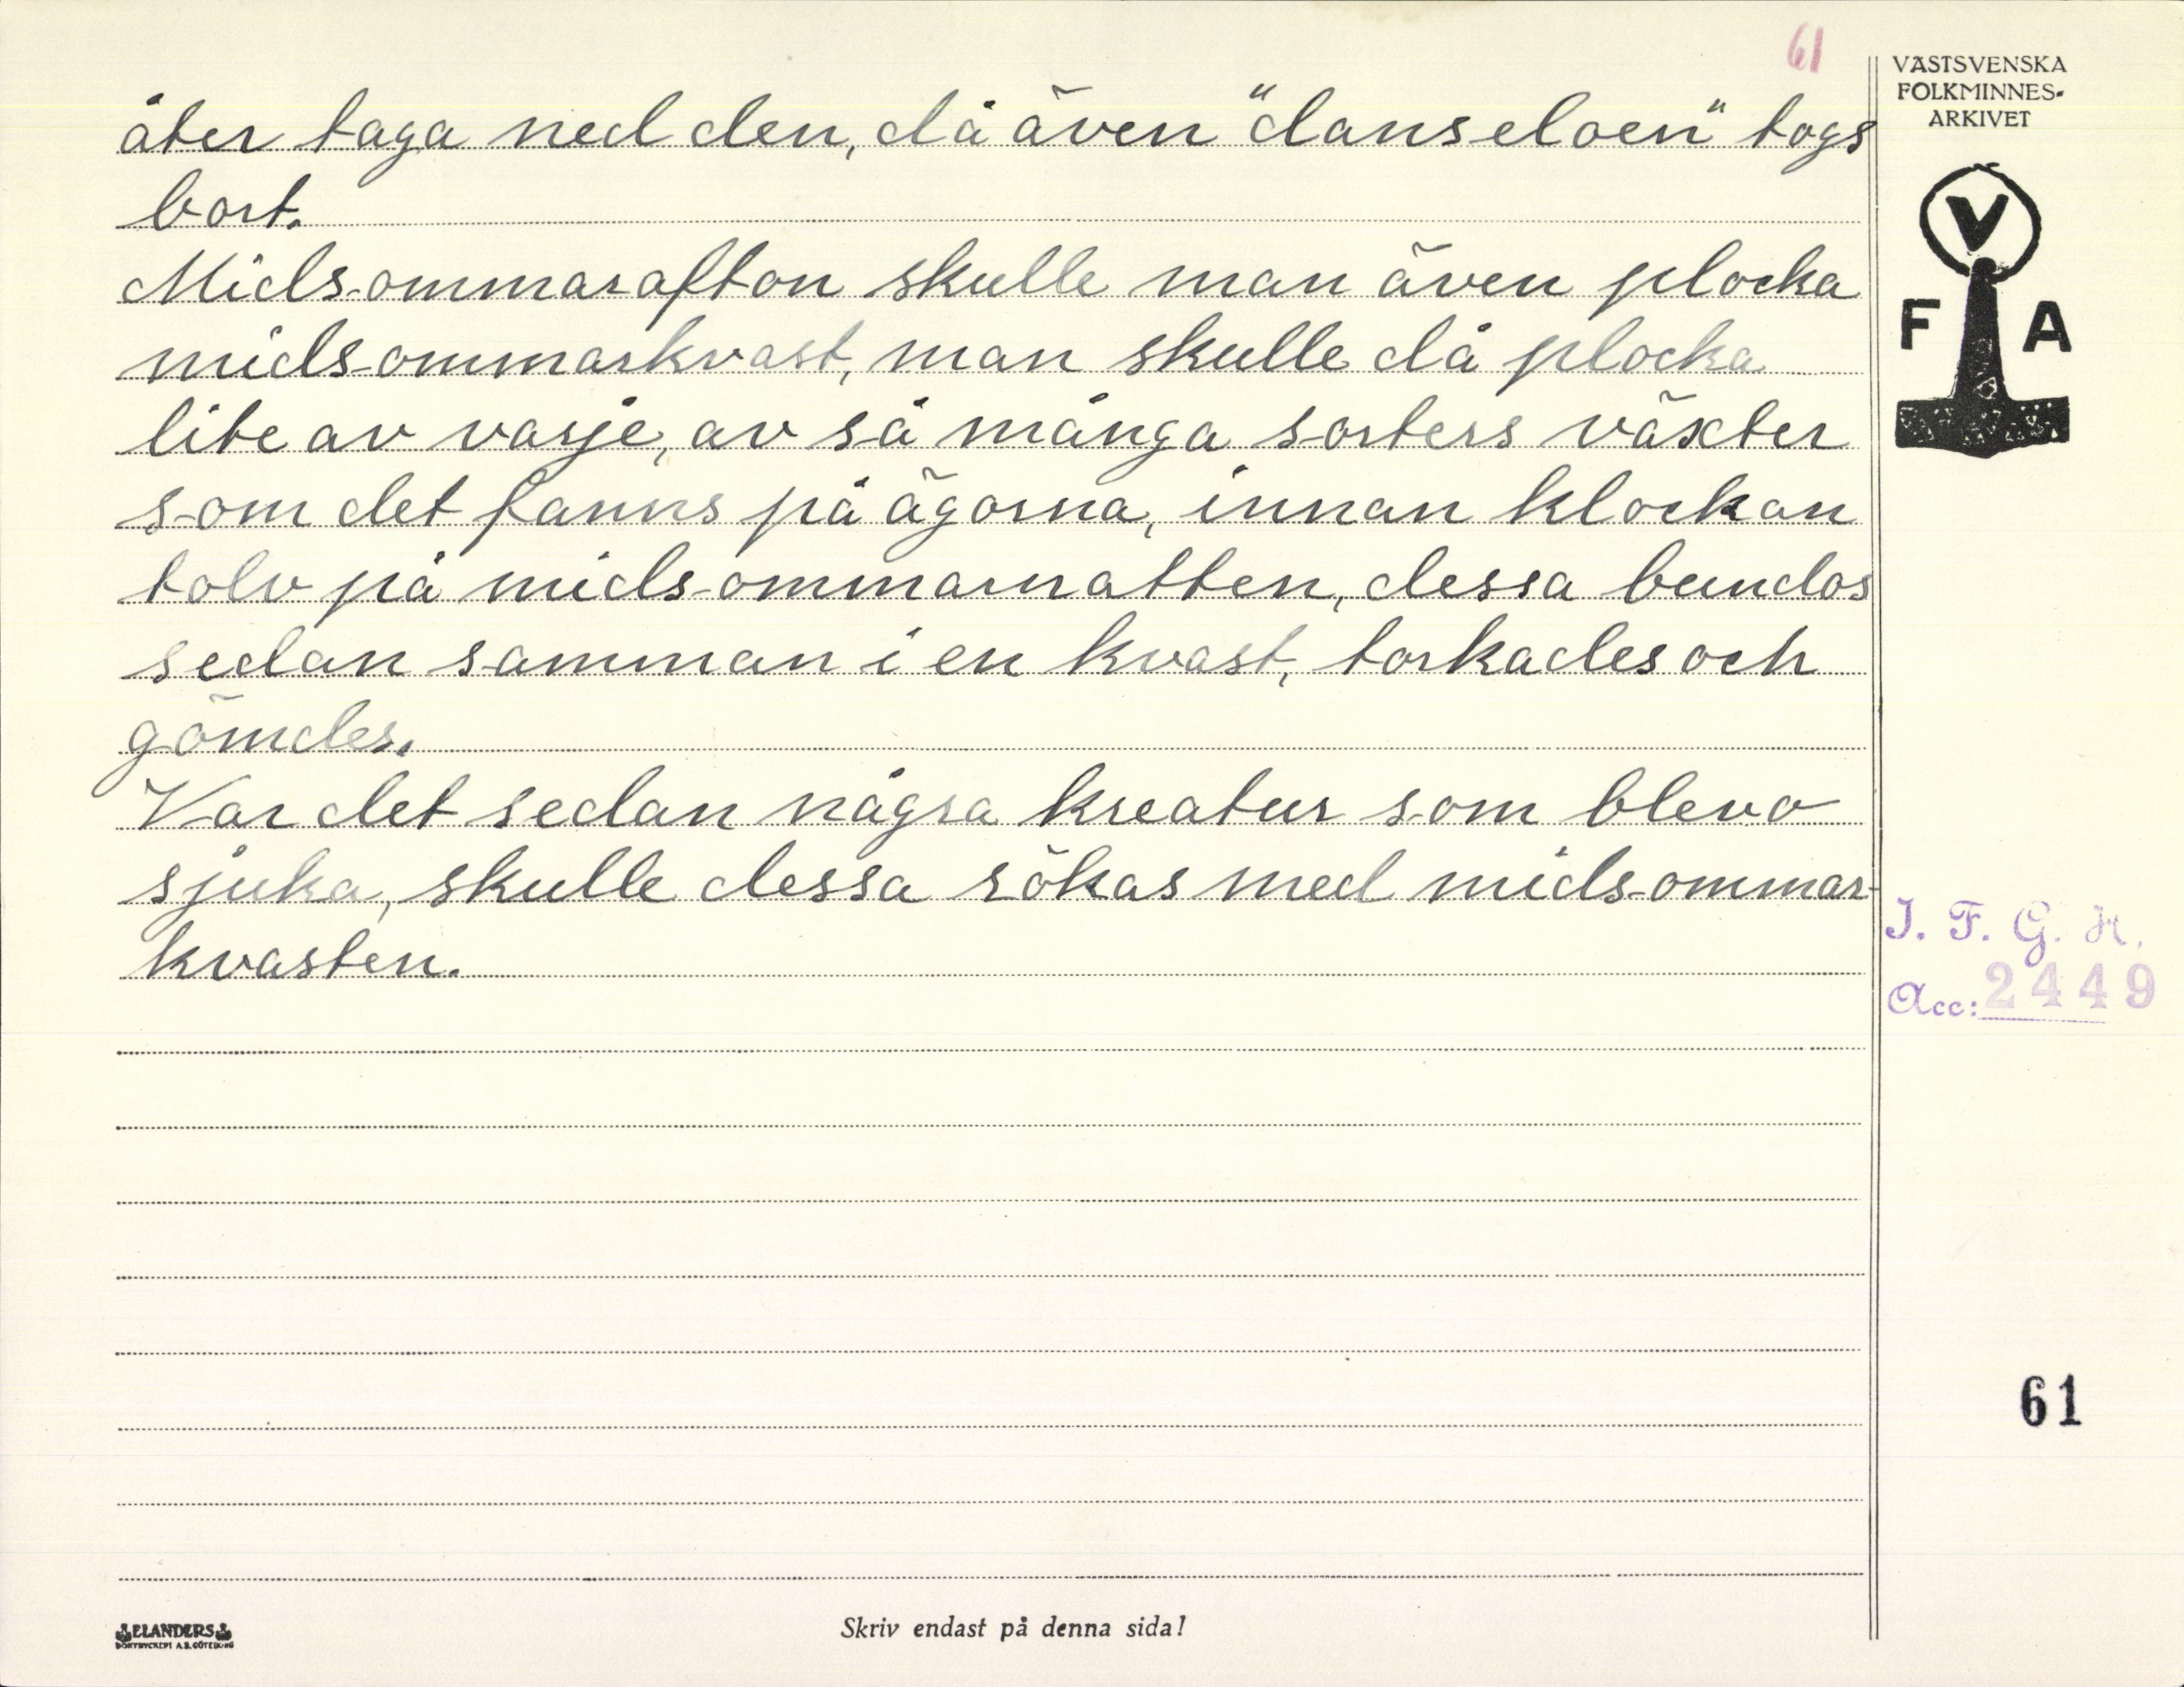 61
åter taga ned den, då även "danseloen" togs
bort.
Midsommarafton skulle man även plocka
midsommarkvast, man skulle då plocka
lite av varje, av så många sorters växter
som det fanns på ägorna, innan klockan
tolv på midsommarnatten, dessa bundos
sedan samman i en kvast, torkades och
gömdes.
Var det sedan några kreatur som blevo
sjuka, skulle dessa rökas med midsommar-
kvasten.
VÄSTSVENSKA
FOLKMINNES-
ARKIVET
V
F A
I. F. G. H.
Acc: 2449
61
ELANDERS
BOKTRYCKERI A.B. GÖTEBORG
Skriv endast på denna sida!